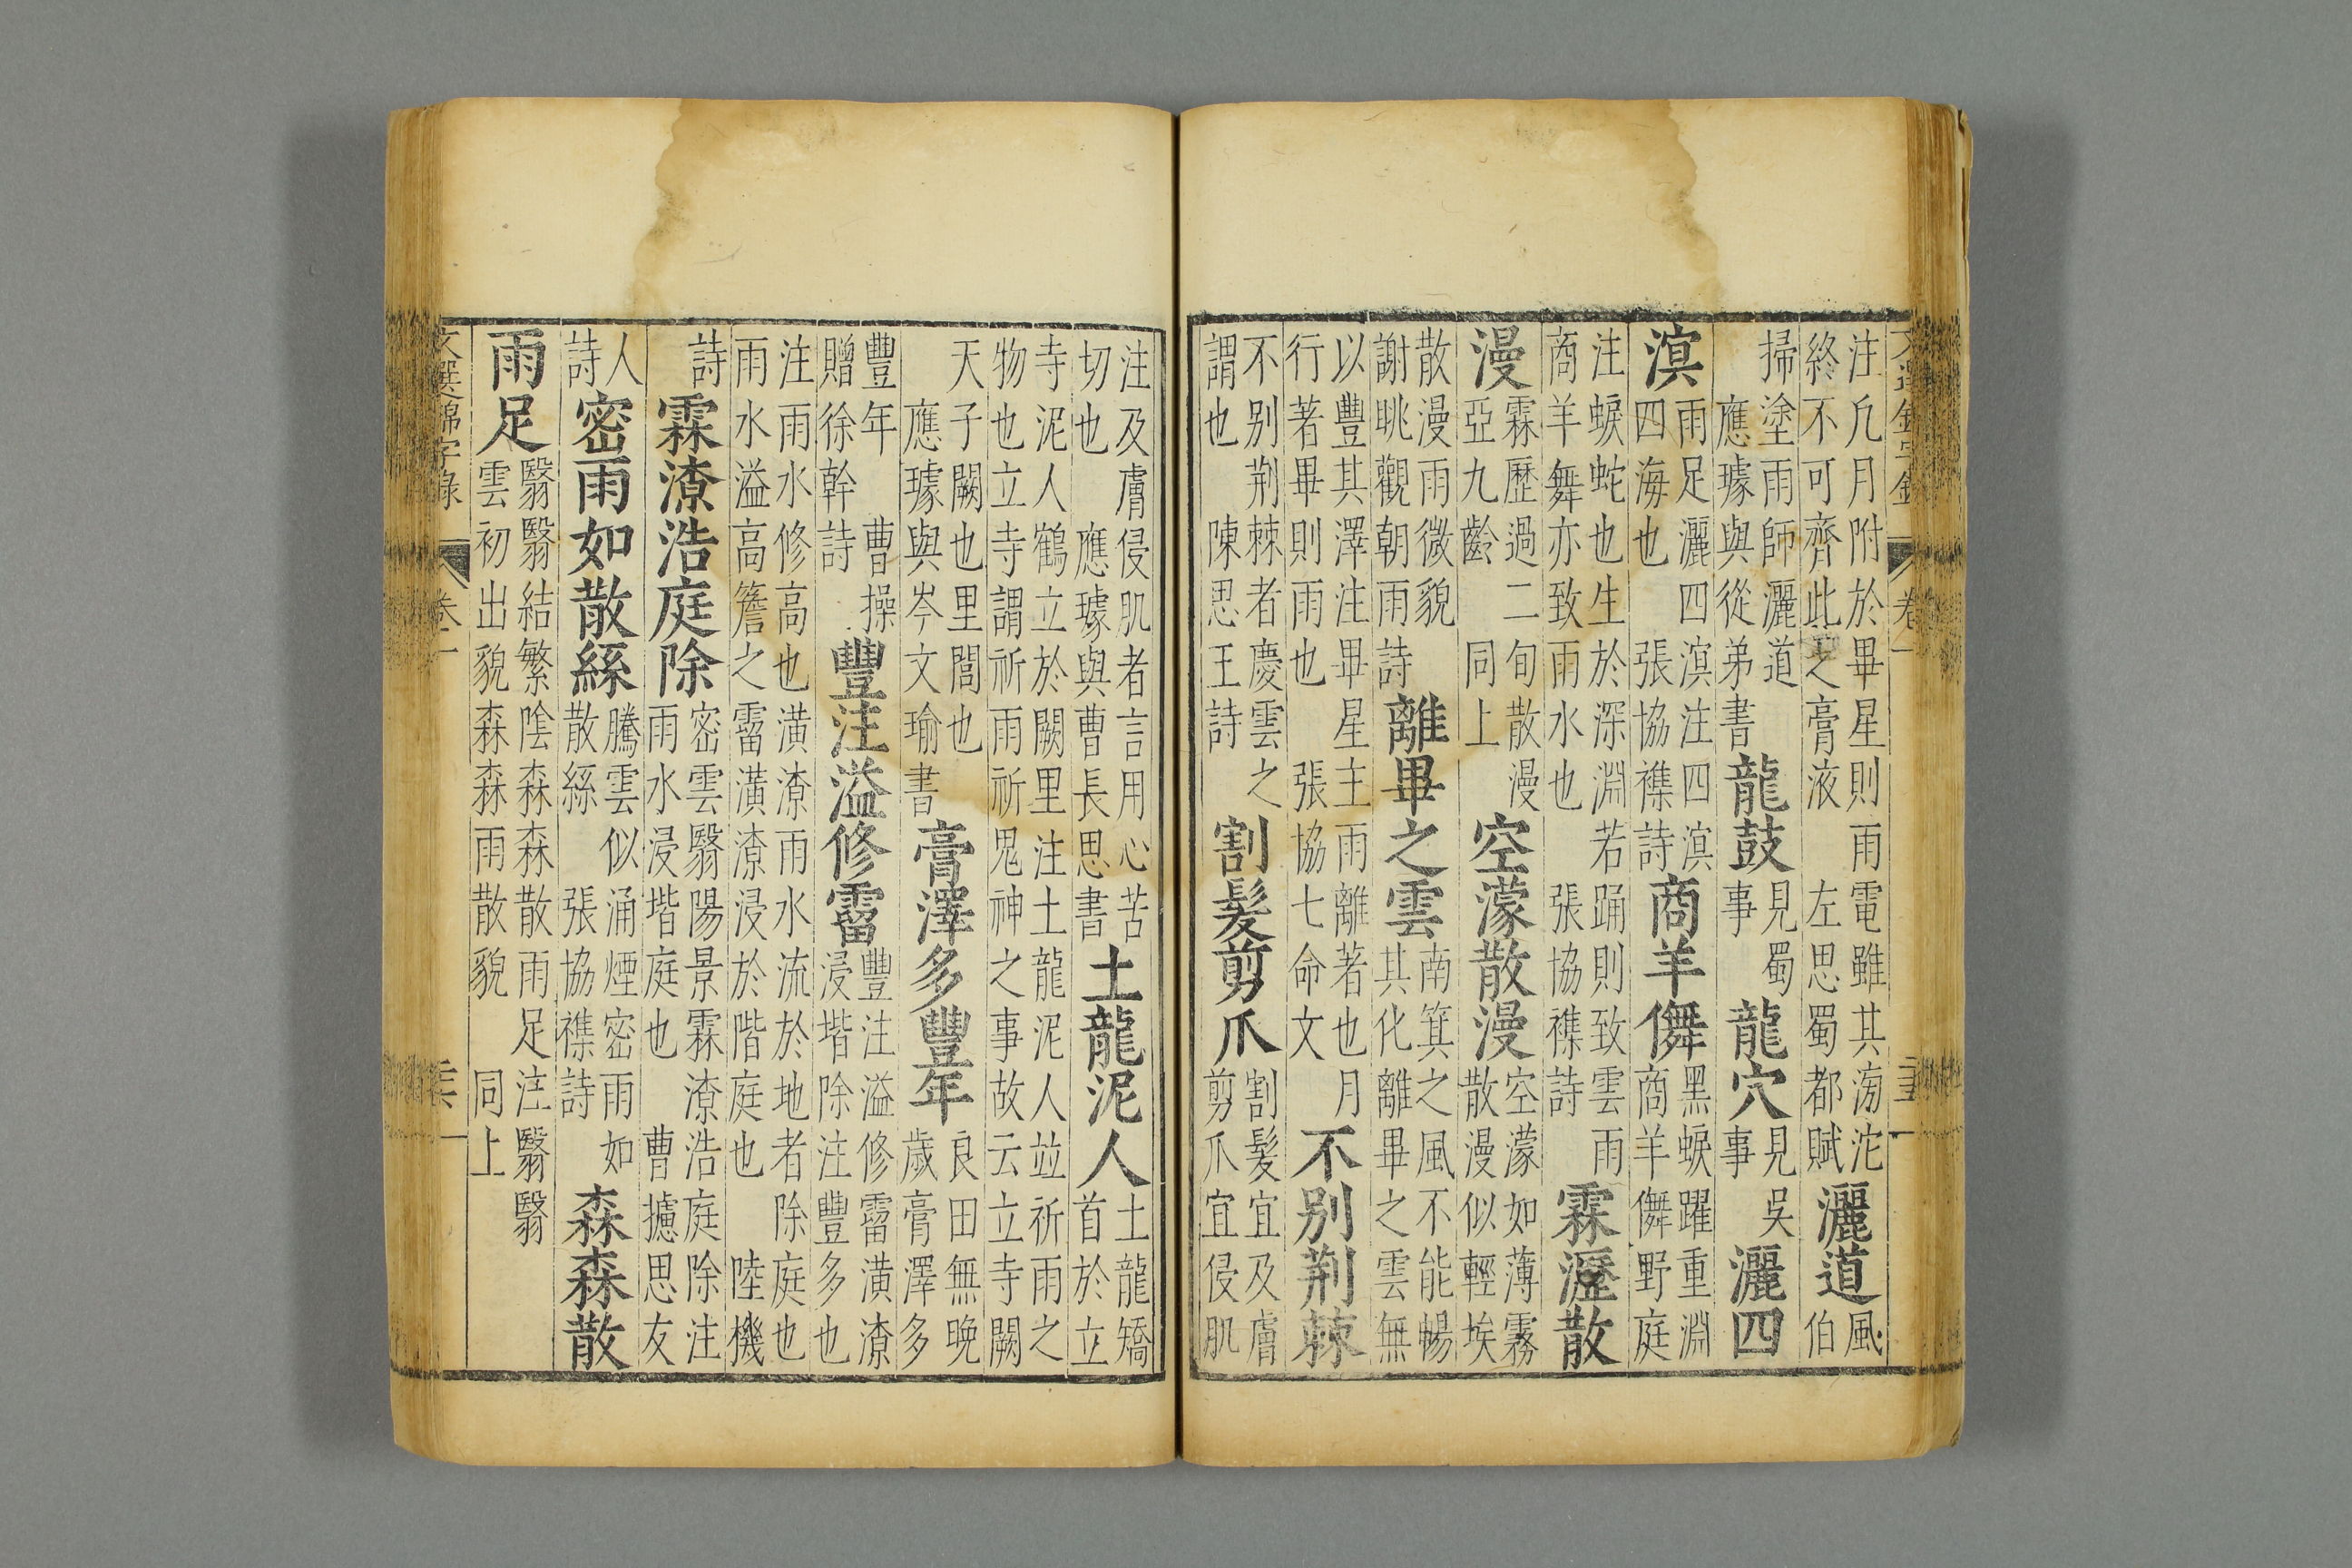 文選錦字錄 卷一
注凢月附於畢星則雨電雖其滂沱終不可齊此之膏液 左思蜀都賦 灑道 風伯
掃塗雨師灑道 應璩與從弟書 龍鼓 見蜀事 龍穴 見吳事 灑四
溟 雨足灑四溟注四溟四海也 張協襍詩 商羊儛 黑蜧躍重淵商羊儛野庭
注蜧蛇也生於深淵若踊則致雲雨商羊舞亦致雨水也 張協襍詩 霖瀝散
漫 霖歷過二旬散漫亞九齡 同上 空濛散漫 空濛如薄霧散漫似輕埃
散漫雨微貌 謝眺觀朝雨詩 離畢之雲 南箕之風不能暢其化離畢之雲無
以豐其澤注畢星主雨離著也月行著畢則雨也 張協七命文 不别荆棘
不别荆棘者慶雲之謂也 陳思王詩 割髮剪爪 割髮宜及膚剪爪宜侵肌
注及膚侵肌者言用心苦切也 應璩與曹長思書 土龍泥人 土龍矯首於立
寺泥人鶴立於闕里注土龍泥人竝祈雨之物也立寺謂祈雨祈鬼神之事故云立寺闕
天子闕也里閭也 應璩與岑文瑜書 膏澤多豐年 良田無晚歲膏澤多
豐年 曹操贈徐幹詩 豐注溢修霤 豐注溢修霤潢潦浸堦除注豐多也
注雨水修高也潢潦雨水流於地者除庭也雨水溢高簷之霤潢潦浸於階庭也 陸機
詩 霖潦浩庭除 密雲翳陽景霖潦浩庭除注雨水浸堦庭也 曹攄思友
人詩 密雨如散絲 騰雲似涌煙密雨如散絲 張協襍詩 森森散
雨足 翳翳結繁隂森森散雨足注翳翳雲初出貌森森雨散貌 同上
文選錦字錄 卷一